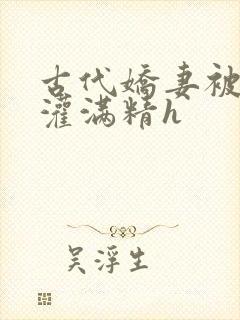 古代嬌妻被
灌满精h
吴浮生